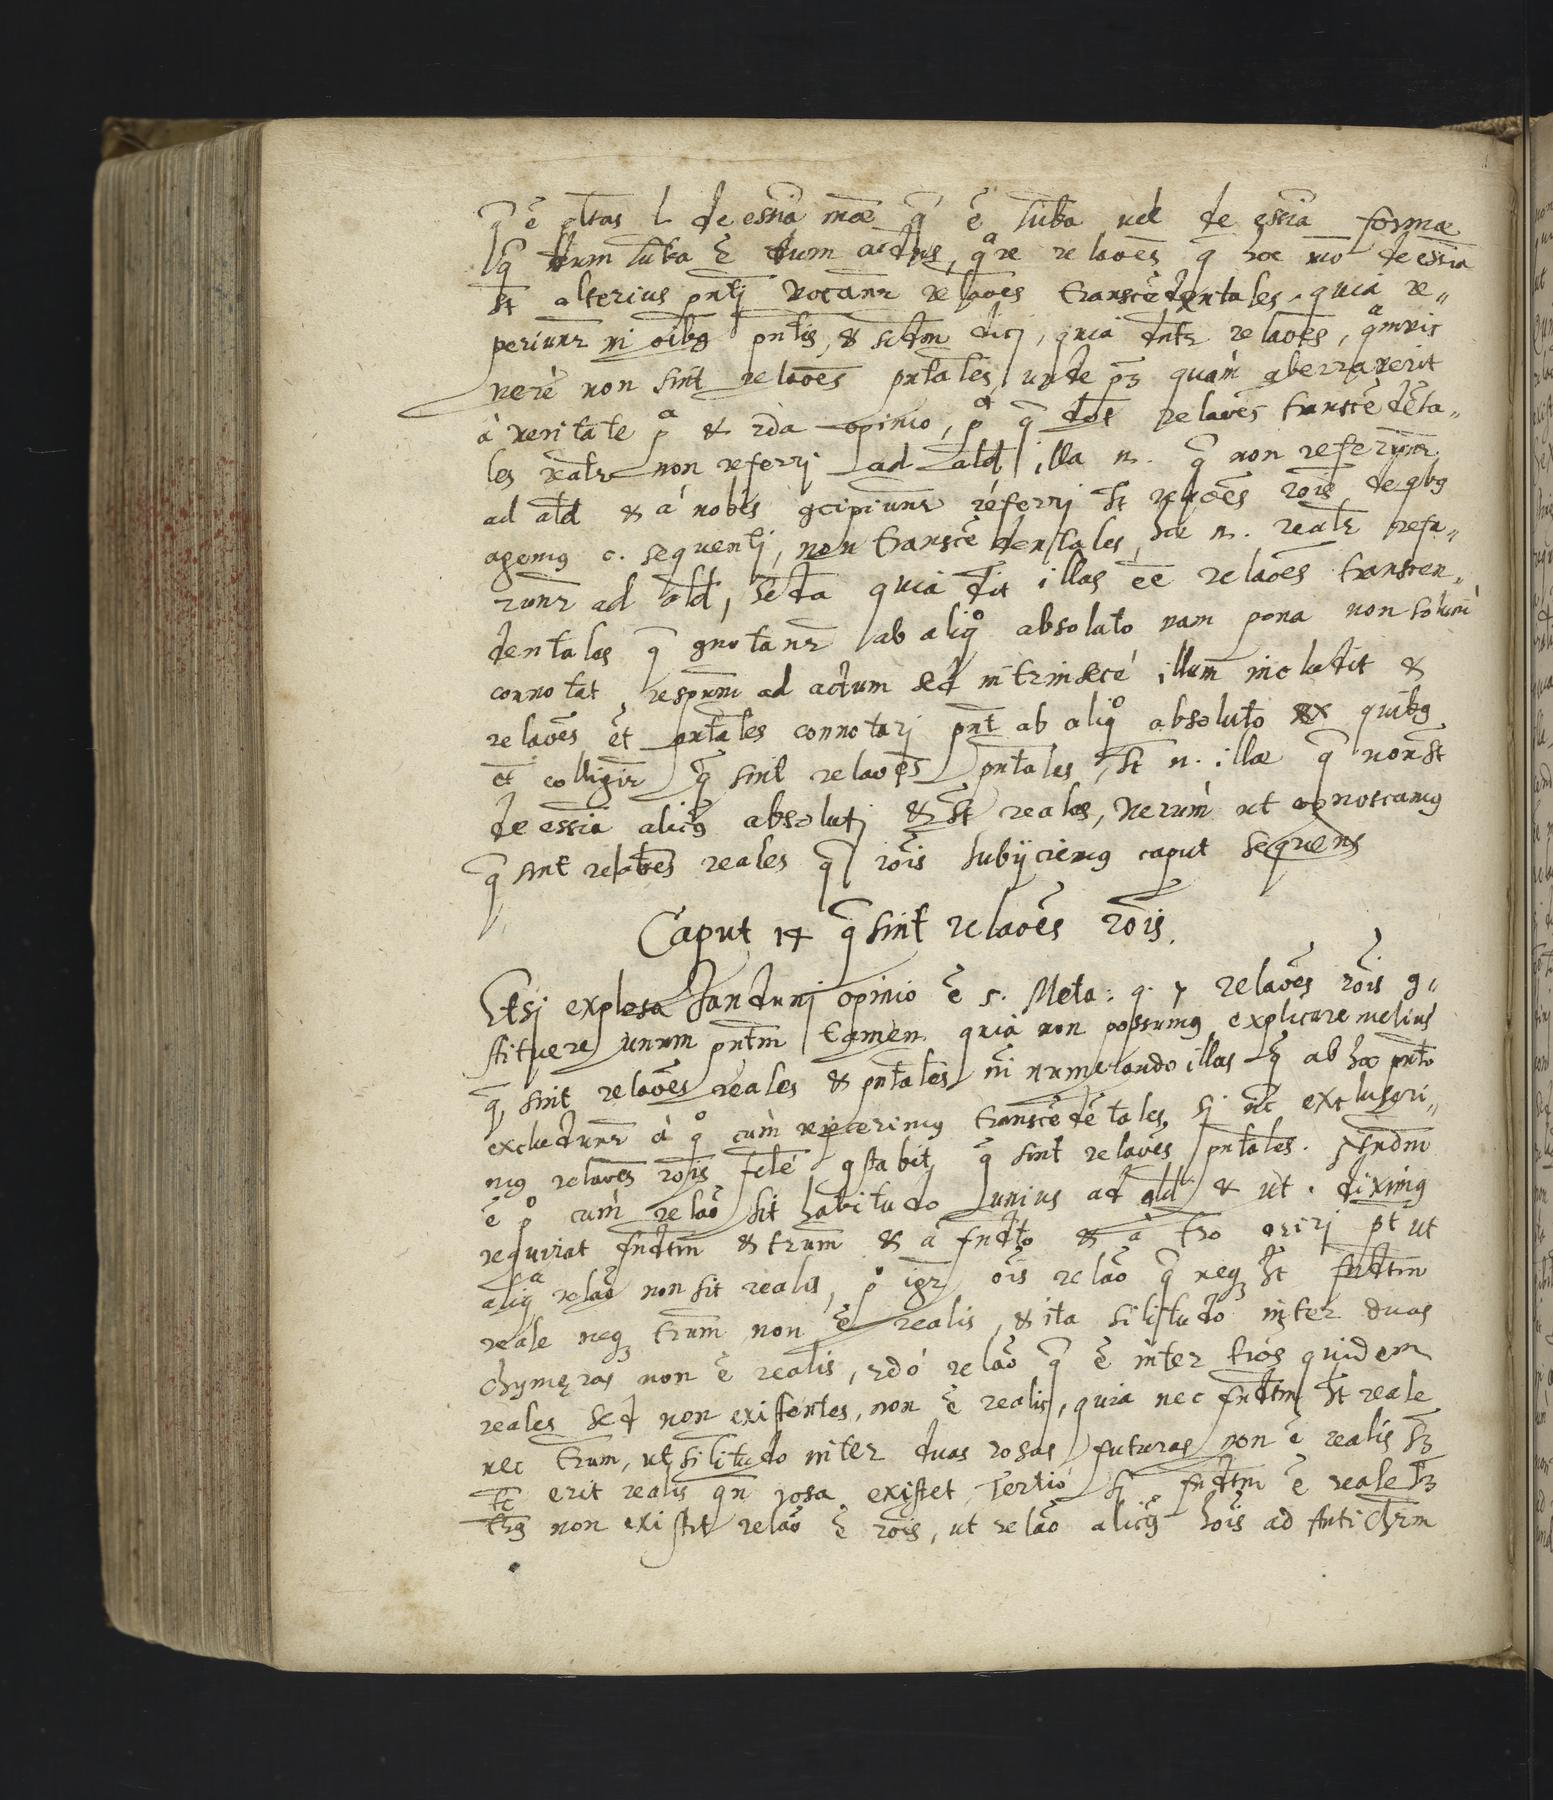 q̄ ē ptas l de essiā mae q̄ ē suba uel de essiā formae
suba ē dum actus, qᵃre relaōes q̄ hoc mō de essiā
st̄ alterius pntj vocanr̄ relaōes transcēdentales, quia re„
periunr̄ in oibꝫ pntis, & dicj, quia dntr̄ relaōes, qᵃmvis
verè non sint relaōes pntales, unde pꝫ quàm aberraverit
à veritate pᵃ & 2da opinio, pᵃ q̄ relaōes transcēdēta„
les realr̄ non referrj ad alid, illa n. q̄ non referunr̄
ad alid & à nobis ꝯcipiunr̄ referrj st̄ relaōes rōis, de qbꝫ
agemꝫ c. sequentj, non transcēdentales, hae n. realr̄ refe„
runr̄ ad alid, 2da quia dit illas ēe relaōes transcen„
dentales q̄ ꝯnotanr̄ ab aliqº absoluto nam pona non solum
connotat respum ad actum sed intrinsecè illum includit &
relaōes ēt pntales connotarj pnt ab aliqº absoluto ex quibꝫ
ēt colligir̄ q̄ sint relaōes pntales, st̄ n. illae q̄ non st̄
de essiā alicꝫ absolutj & st̄ reales, verùm ut cognoscamꝫ
q̄ sint relaōes reales q̄ rōis subijciemꝫ caput sequens
Caput 14 q̄ sint relaōes rōis.
Etsj explosa Janduni opinio ē 5. Meta: q. 7 relaōes rōis ꝯ„
stituere unum pntm tamen quia non possumꝫ explicare melius
q̄ sint relaōes reales & pntales nī numerando illas q̄ ab hoc pnto
excludunr̄ à qº cùm rejecerimꝫ transcēdētales, si nc excluseri„
mꝫ relaōes rōis fclè ꝯstabit q̄ sint relaōes pntales.
ē pº cùm relaō sit habitudo unius ad alid & ut diximꝫ
requirat fndtm & trum & à fndto & à tro orirj pt ut
aliqᵃ relaō non sit realis, pº igr̄ ōis relaō q̄ neqꝫ ht fndtm
reale neqꝫ trum non ē realis, & ita silitudo inter duas
chymeras non ē realis, 2dó relaō q̄ ē inter tros quidem
reales sed non existentes, non ē realis, quia nec fndtm ht reale
nec trum, ut silitudo inter duas rosas futuras non ē realis sꝫ
tc erit realis qn rosa existet, Tertiò si fndtm ē reale sꝫ
trꝫ non existit relaō ē rōis, ut relaō alicꝫ hōis ad Antichrm